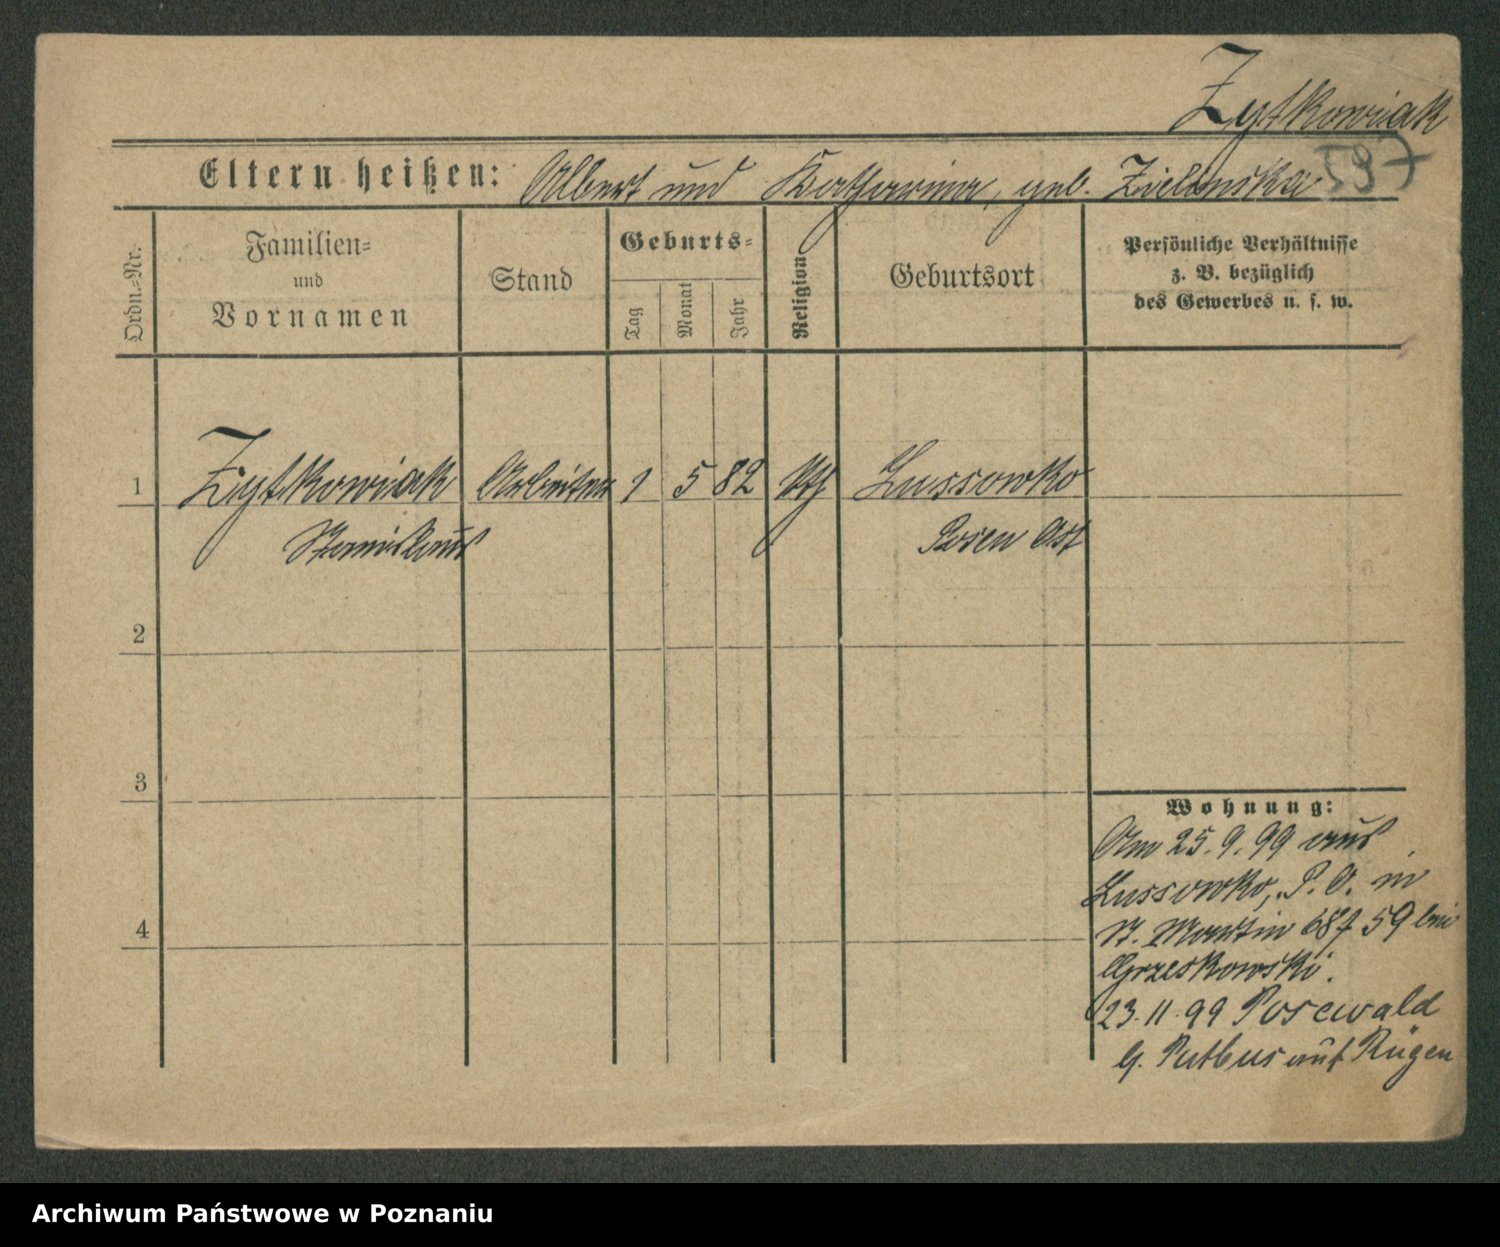 Zytkowiak
597
Eltern heißen: Albert und Katharina, geb. Zielinska
Ordn.-Nr.
Familien-
und
Vornamen
Stand
Geburts-
Tag
Monat
Jahr
Religion
Geburtsort
Persönliche Verhältnisse
z. B. bezüglich
des Gewerbes u. s. w.
1 Zytkowiak Arbeiter 1 5 82 kth Lussowko
Stanislaus Posen Ost
2
3
4
Wohnung:
Am 25.9.99 aus
Lussowko, P. O. in
St. Martin 68 59 bei
Grzeskowski.
23.11.99 Posewald
b. Putbus auf Rügen
Archiwum Państwowe w Poznaniu